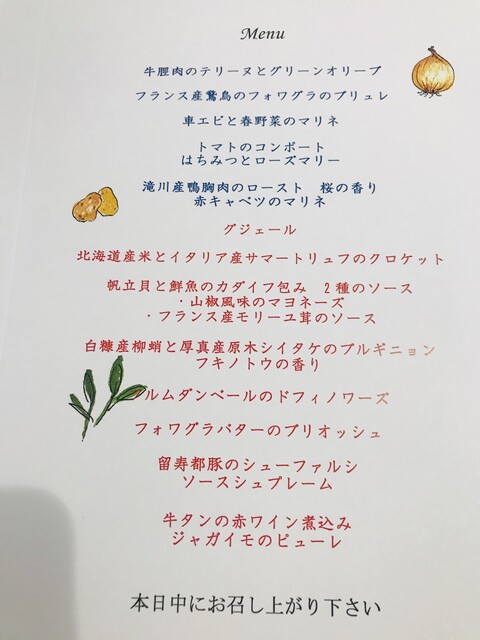 Menu
牛脛肉のテリーヌとグリーンオリーブ
フランス産鵞鳥のフォワグラのブリュレ
車エビと春野菜のマリネ
トマトのコンポート
はちみつとローズマリー
滝川産鴨胸肉のロースト 桜の香り
赤キャベツのマリネ
グジェール
北海道産米とイタリア産サマートリュフのクロケット
帆立貝と鮮魚のカダイフ包み 2種のソース
・山椒風味のマヨネーズ
・フランス産モリーユ茸のソース
白糠産柳蛸と厚真産原木シイタケのブルギニョン
フキノトウの香り
ルムダンベールのドフィノワーズ
フォワグラバターのブリオッシュ
留寿都豚のシューファルシ
ソースシュプレーム
牛タンの赤ワイン煮込み
ジャガイモのピューレ
本日中にお召し上がり下さい